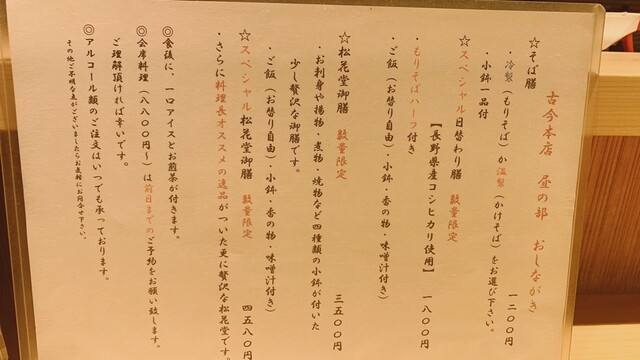 古今本店　昼の部　おしながき
☆そば膳　一二〇〇円
・冷製（もりそば）か温製（かけそば）をお選び下さい。
・小鉢一品付
☆スペシャル日替わり膳　数量限定
【長野県産コシヒカリ使用】　一八〇〇円
・もりそばハーフ付き
・ご飯（お替り自由）・小鉢・香の物・味噌汁付き）
☆松花堂御膳　数量限定　三五〇〇円
・お刺身や揚物・煮物・焼物など四種類の小鉢が付いた
少し贅沢な御膳です。
・ご飯（お替り自由）・小鉢・香の物・味噌汁付き）
☆スペシャル松花堂御膳　数量限定　四五八〇円
・さらに料理長オススメの逸品がついた更に贅沢な松花堂です。
◎食後に、一口アイスとお煎茶が付きます。
◎会席料理（八八〇〇円〜）は前日までのご予約をお願い致します。
ご理解頂ければ幸いです。
◎アルコール類のご注文はいつでも承っております。
その他ご不明な点がございましたらお気軽にお問合せ下さい。